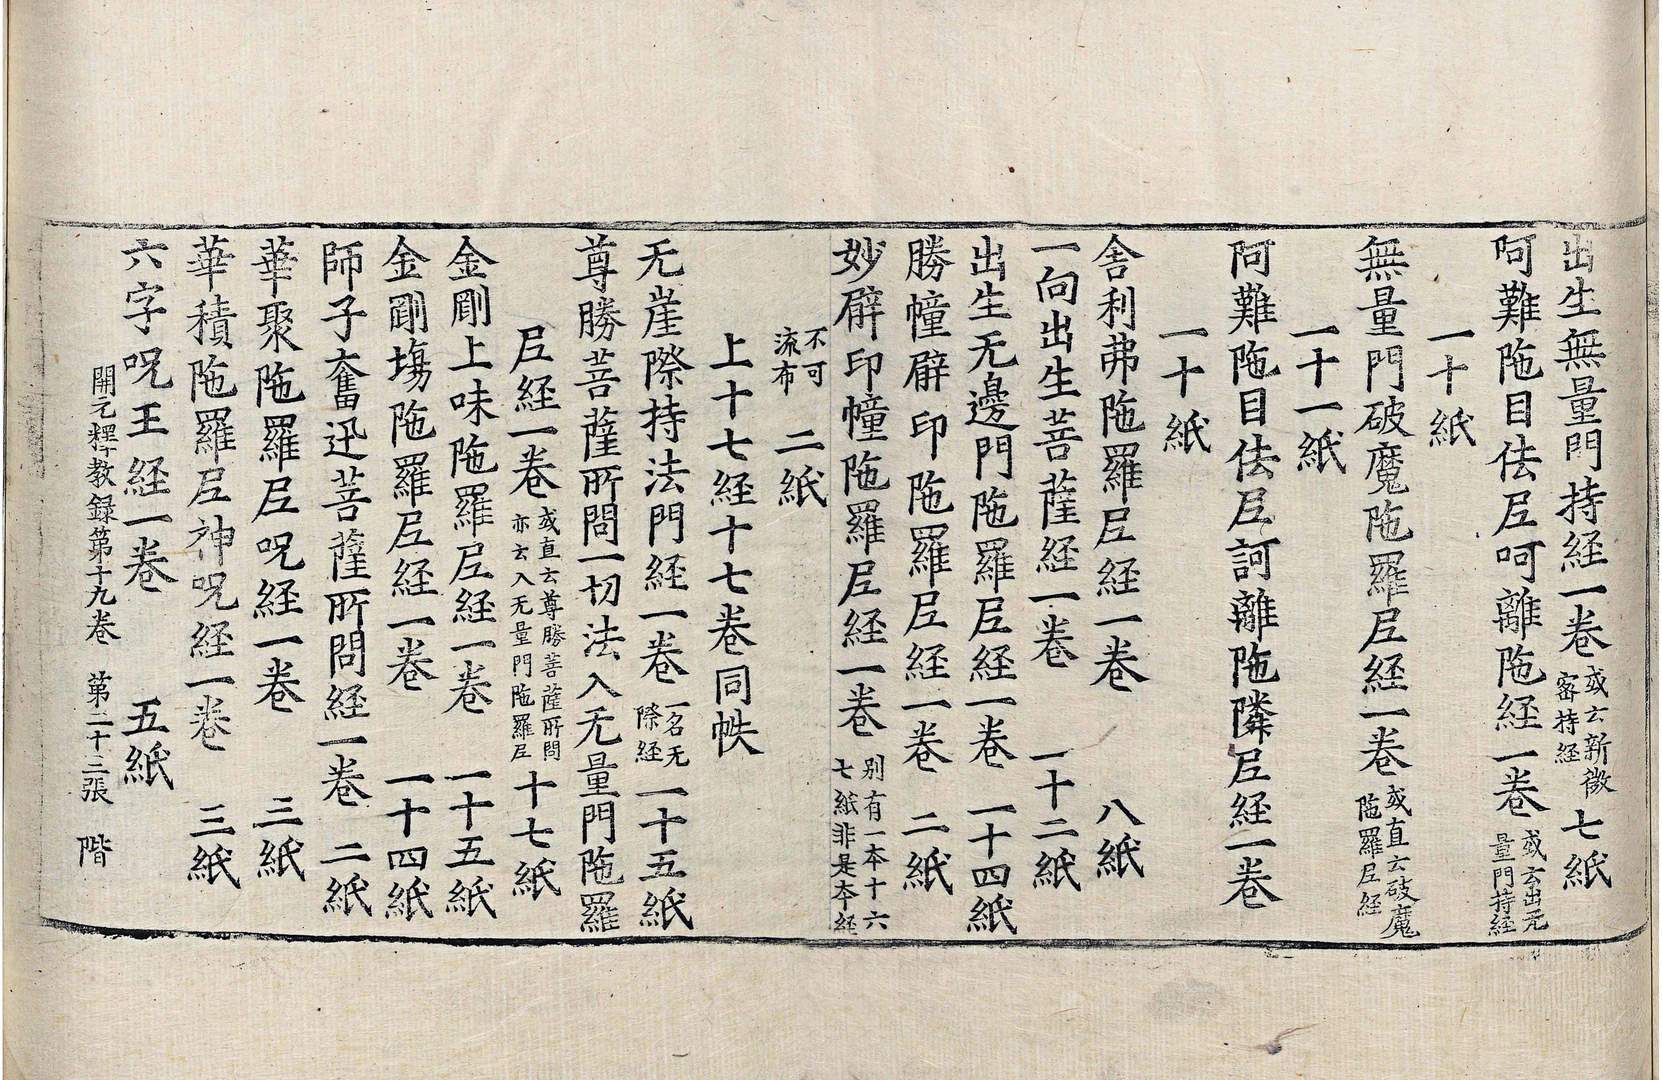 出生無量門持經一卷或云新微密持經 七紙
阿難陁目佉尼呵離陁經一卷或云出无量門持經
一十紙
無量門破魔陁羅尼經一卷或直云破魔陁羅尼經
一十一紙
阿難陁目佉尼訶離陁隣尼經一卷
一十紙
舎利弗陁羅尼經一卷 八紙
一向出生菩薩經一卷 一十二紙
出生无邊門陁羅尼經一卷 一十四紙
勝幢臂印陁羅尼經一卷 二紙
妙臂印幢陁羅尼經一卷別有一本十六七紙非是本經
不可流布 二紙
上十七經十七卷同帙
无崖際持法門經一卷一名无際經 一十五紙
尊勝菩薩所問一切法入无量門陁羅
尼經一卷或直云尊勝菩薩所問亦云入无量門陁羅尼 十七紙
金剛上味陁羅尼經一卷 一十五紙
金剛塲陁羅尼經一卷 一十四紙
師子奮迅菩薩所問經一卷 二紙
華聚陁羅尼呪經一卷 三紙
華積陁羅尼神呪經一卷 三紙
六字呪王經一卷 五紙
開元釋教錄第十九卷 第二十三張 階